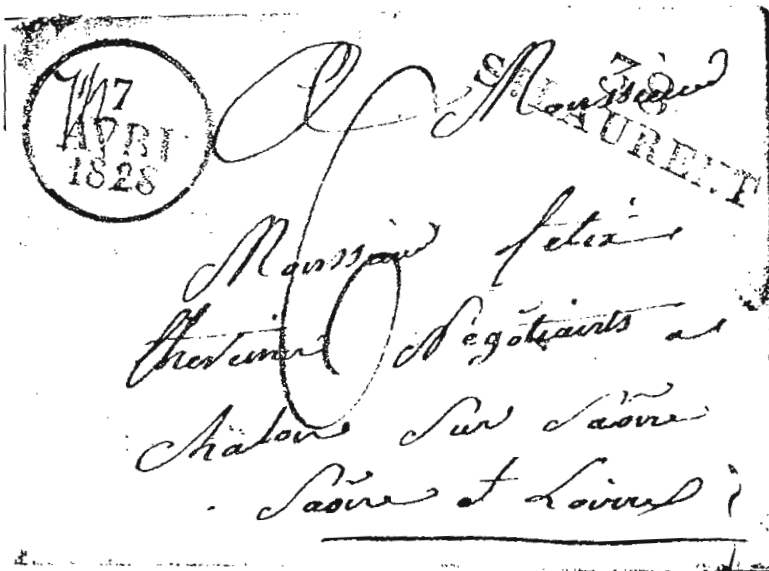 7
1828
38
ST LAURENT
A Monsieur
6
Monsieur felix
Négotiants a
Chalon Sur Saône
Saône et Loire